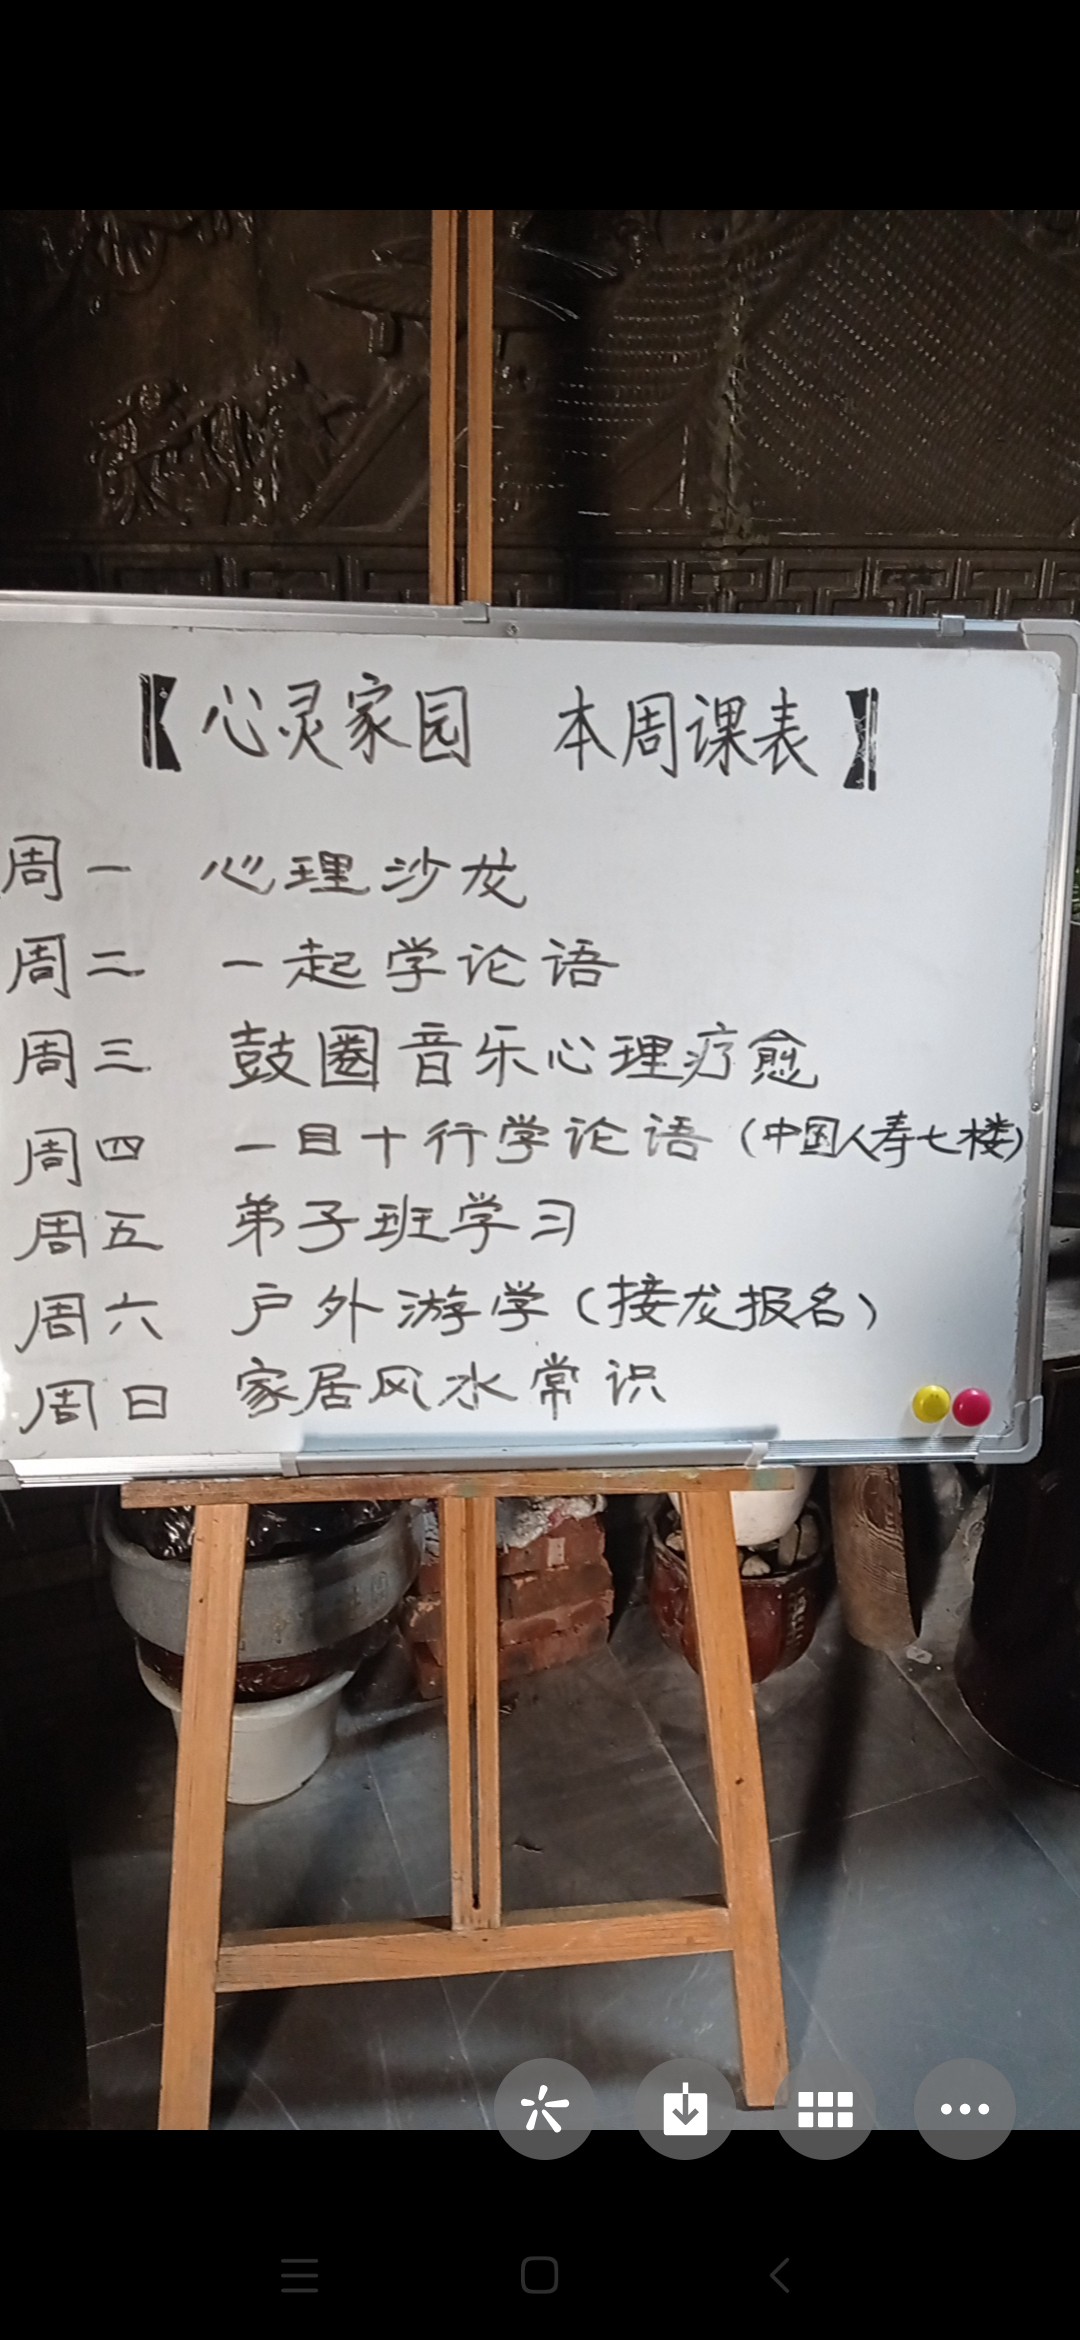 【心灵家园 本周课表】
周一 心理沙龙
周二 一起学论语
周三 鼓圈音乐心理疗愈
周四 一目十行学论语(中国人寿七楼)
周五 弟子班学习
周六 户外游学(接龙报名)
周日 家居风水常识